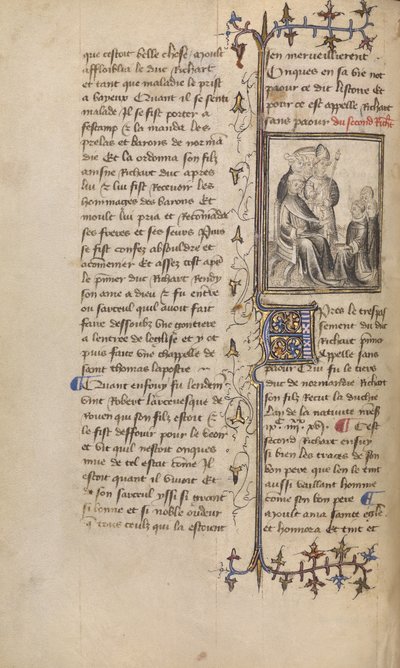 que cestoit belle chose ⁊ moult
affloiblia le duc Richart
et tant que maladie le prist
a bayeux Quant il se senti
malade Il se fist porter a
fescamp ⁊ la manda les
prelas et barons de norman
die Et la ordonna son filz
ainsne Richart duc apres
lui ⁊ lui fist recevoir les
hommages des barons Et
moult lui pria et recomanda
ses freres et ses seurs Puis
se fist confez absouldre et
acomenier Et assez tost apres
le premier duc Richart Rendy
son ame a dieu ⁊ fu enterre
ou sarceul quil avoit fait
faire dessoubz une goutiere
a lentree de leglise et y ot
puis faite une chappelle de
saint thomas lapostre
Quant enfouy fu lendemain
vint Robert larcevesque de
Rouen qui son filz estoit ⁊
le fist deffouir pour le veoir
et vit quil nestoit onques
mue de tel estat come Il
estoit quant il vivoit Et
de son sarceul yssi si grant
si bonne et si noble oudeur
que tous ceulz qui la estoient
sen merveillierent
Onques en sa vie not
paour ce dit listoire Et
pour ce est appelle Richart
sans paour du second Richart
Apres le trespas
sement du duc
Richart premier
appelle sans
paour Qui fu le tiers
duc de normandie Richart
son filz Recut la duchie
Lan de la nativite nostre
Cest
second Richart ensuy
si bien les traces de son
bon pere que len le tint
aussi vaillant homme
come son bon pere Et
moult ama sainte eglise
et honnora Et tint et